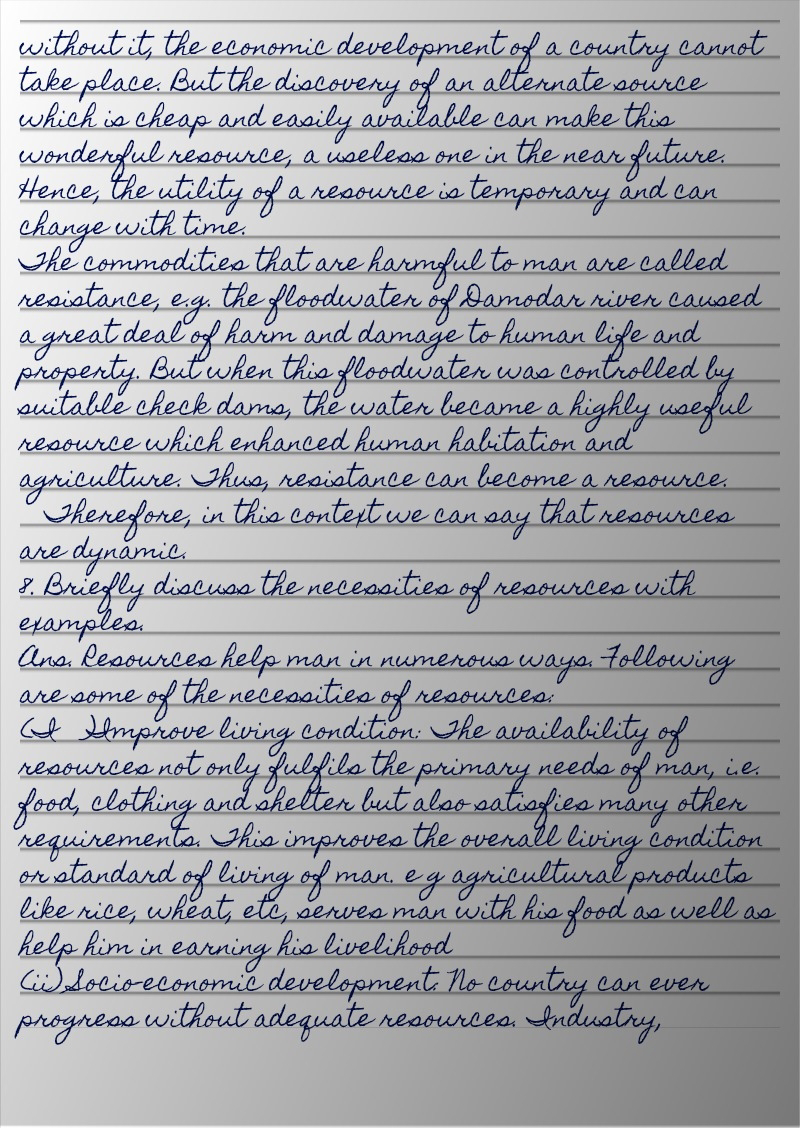 without it, the economic development of a country cannot
take place. But the discovery of an alternate source
which is cheap and easily available can make this
wonderful resource, a useless one in the near future.
Hence, the utility of a resource is temporary and can
change with time.
The commodities that are harmful to man are called
resistance, e.g. the floodwater of Damodar river caused
a great deal of harm and damage to human life and
property. But when this floodwater was controlled by
suitable check dams, the water became a highly useful
resource which enhanced human habitation and
agriculture. Thus, resistance can become a resource.
Therefore, in this context we can say that resources
are dynamic.
8. Briefly discuss the necessities of resources with
examples.
Ans. Resources help man in numerous ways. Following
are some of the necessities of resources:
(I )Improve living condition: The availability of
resources not only fulfils the primary needs of man, i.e.
food, clothing and shelter but also satisfies many other
requirements. This improves the overall living condition
or standard of living of man. e g agricultural products
like rice, wheat, etc, serves man with his food as well as
help him in earning his livelihood
(ii)Socio-economic development: No country can ever
progress without adequate resources. Industry,